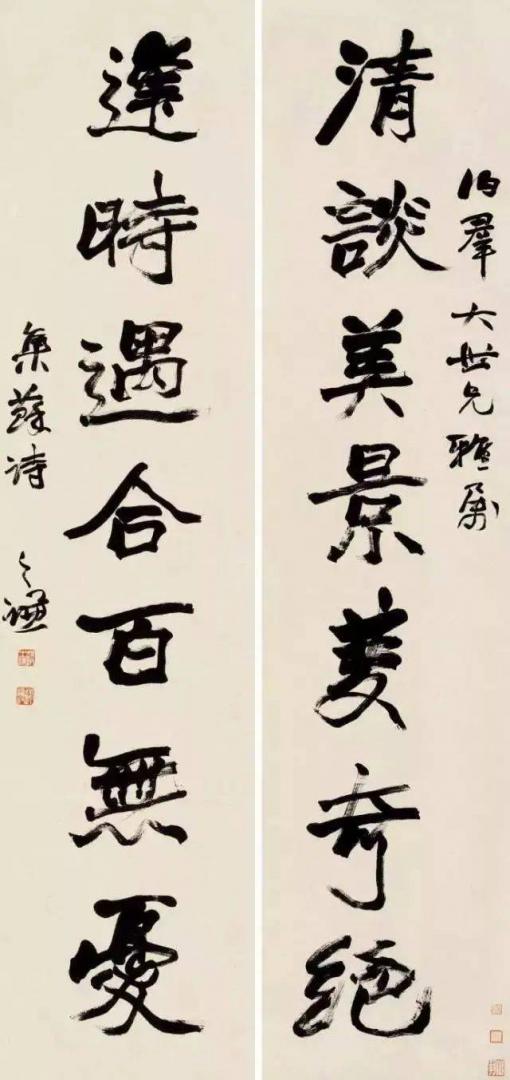 伯羣大世兄雅屬
清談美景奇絕
達時遇合百無憂
集蘇詩 之謙